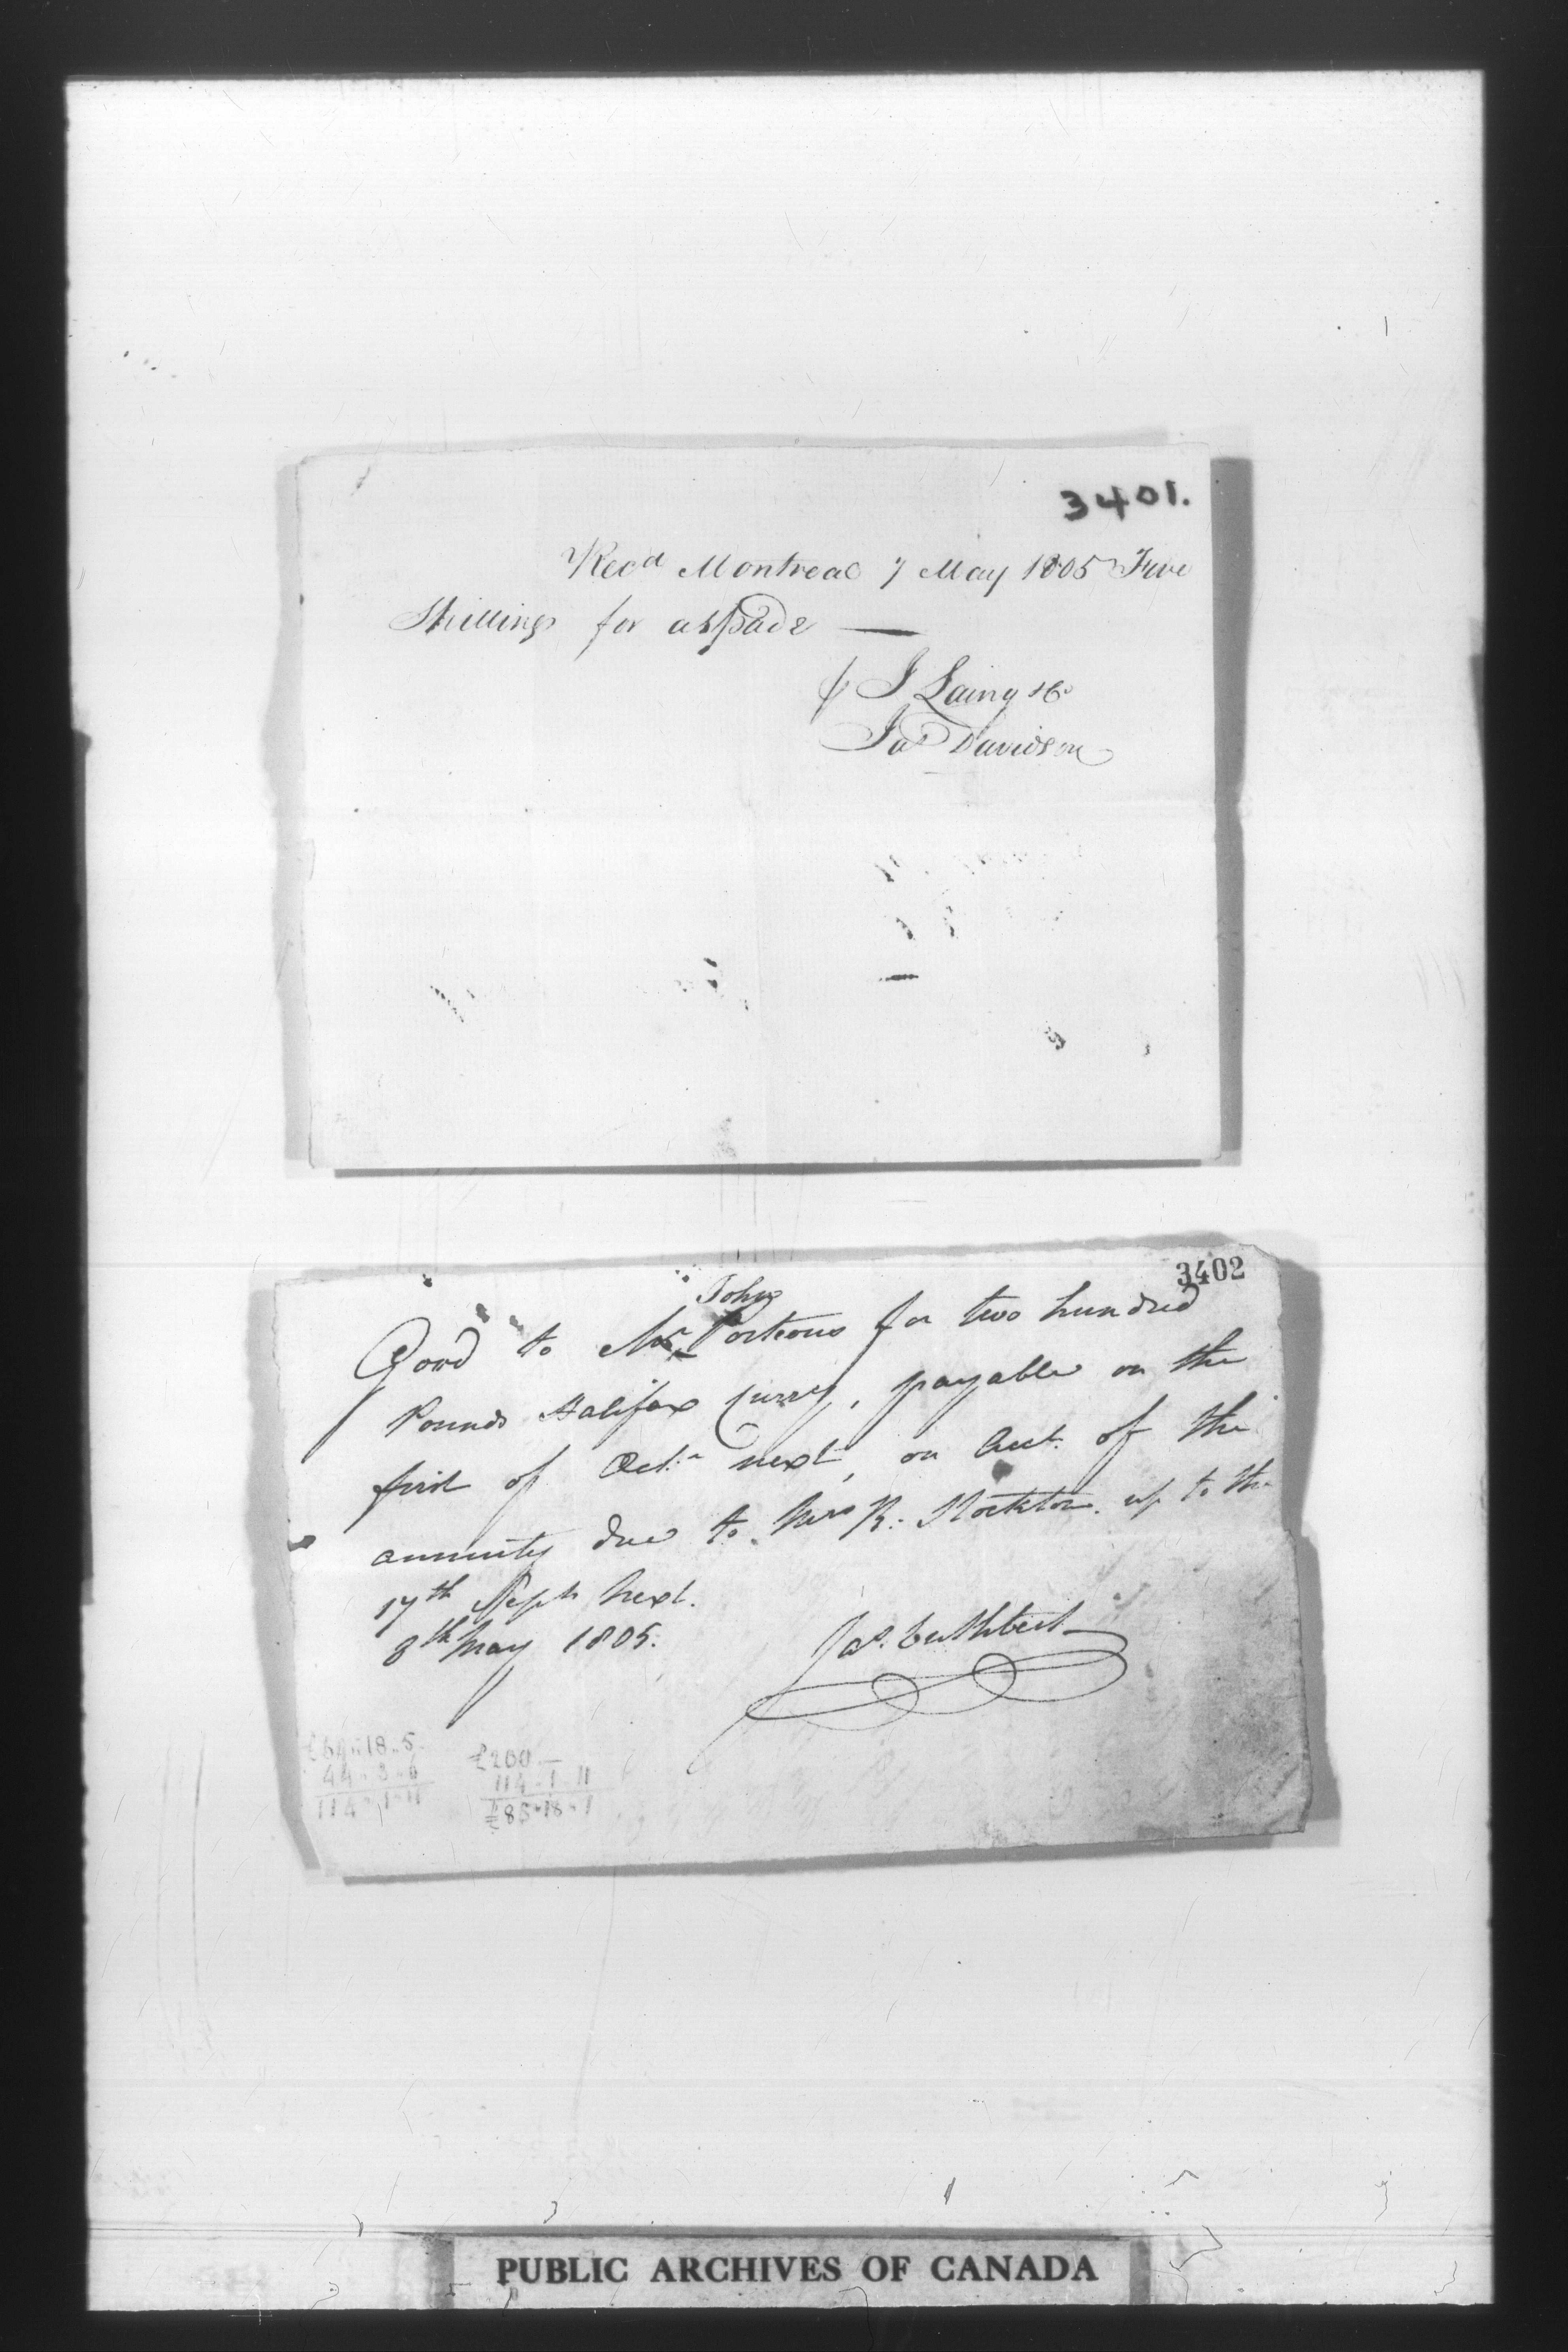 3401.
Recd Montreal 7 May 1805 Five
Shillings for a spade —
J Laing & Co
Jas Davidson
3402
John
Good to Mr ‸ Porteous for two hundred
Pounds Halifax Curry, payable on the
first of Octr next, on Acct. of the
annuity due to Mrs R: Stockton up to the
17th Sept Next.
8th May 1805.
Jas. Cuthbert
18 - 5
44 - 3 - 6
114 - 1 - 11
£200 —
114 - 1 - 11
£85 - 18 - 1
PUBLIC ARCHIVES OF CANADA